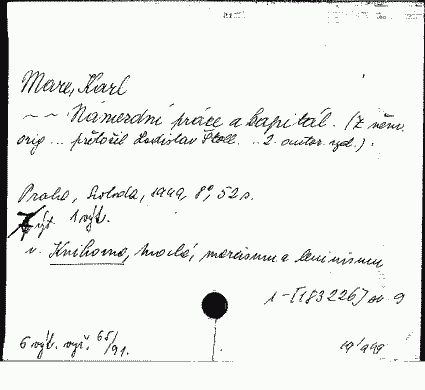 Marx, Karl
~ ~ Námezdní práce a kapitál. (Z něm.
orig ... přeložil Ladislav Štoll ... 2. autor. vyd.)
Praha, Svoboda, 1949, 8°, 52 s.
výt. 1 výt.
v. Knihovna, malá, marxismu a leninismu
1-[183226] sv. 9
6 výt. vyř. 65/91.
19/949